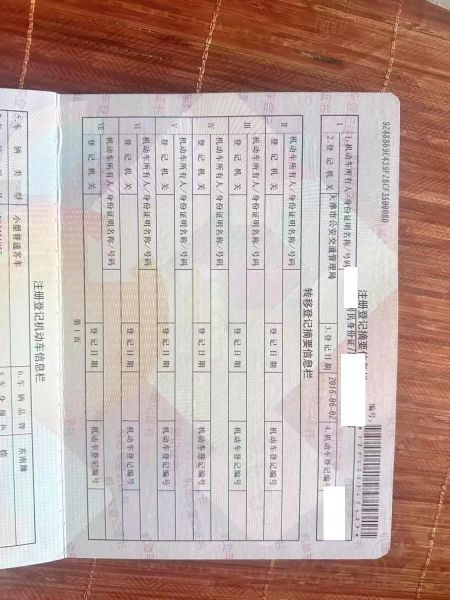 92A8869E439F28CF3500080
编号:
注册登记摘要信息栏
I
1.机动车所有人/身份证明名称/号码
居民身份证/
2.登记机关
天津市公安交通管理局
3.登记日期
2016-06-02
4.机动车登记编号
转移登记摘要信息栏
II
机动车所有人/身份证明名称/号码
登记机关
登记日期
机动车登记编号
III
机动车所有人/身份证明名称/号码
登记机关
登记日期
机动车登记编号
IV
机动车所有人/身份证明名称/号码
登记机关
登记日期
机动车登记编号
V
机动车所有人/身份证明名称/号码
登记机关
登记日期
机动车登记编号
VI
机动车所有人/身份证明名称/号码
登记机关
登记日期
机动车登记编号
VII
机动车所有人/身份证明名称/号码
登记机关
登记日期
机动车登记编号
第1页
注册登记机动车信息栏
5.车辆类型
小型普通客车
6.车辆品牌
东南牌
8.车身颜色